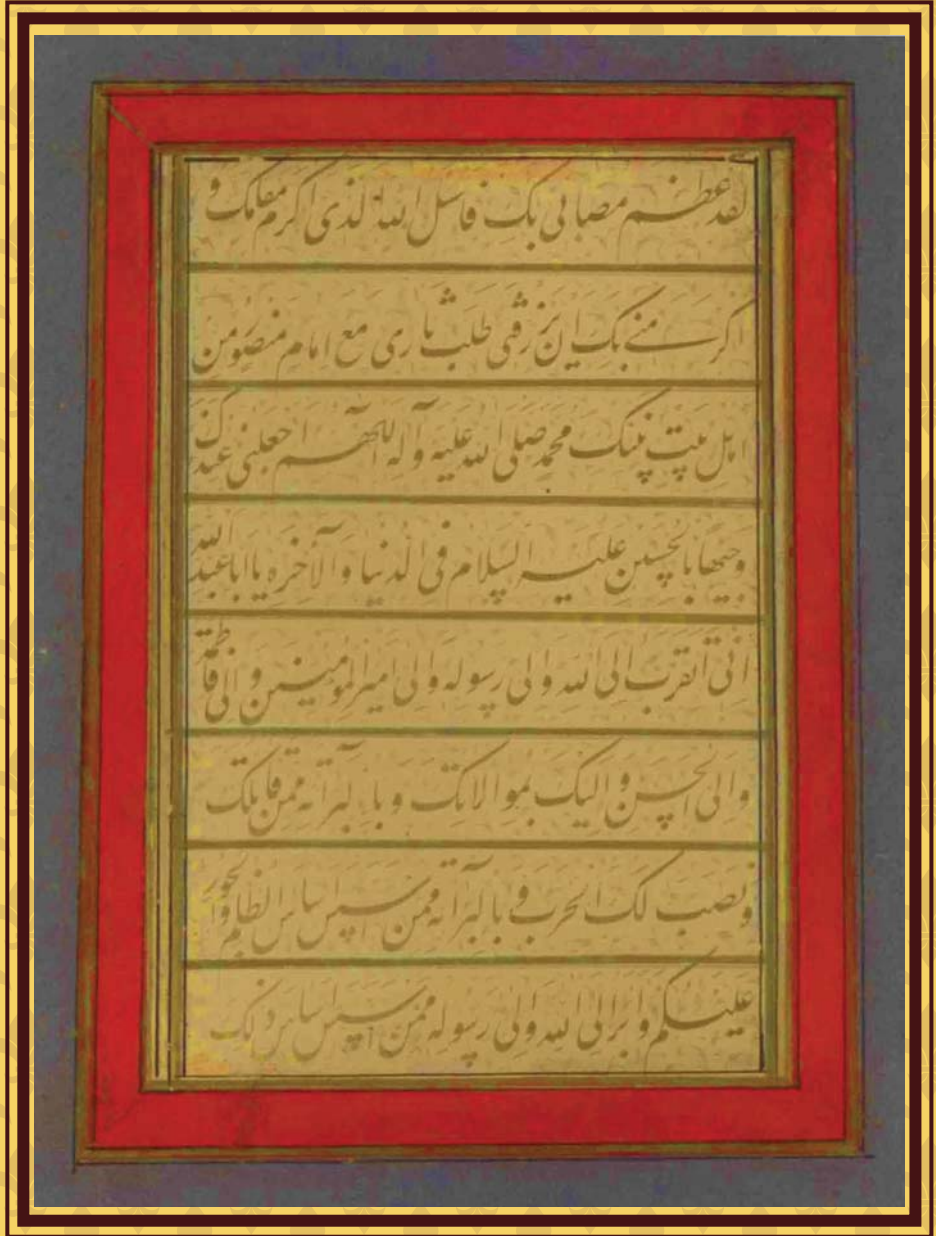 لقد عظم مصابی بک فاسئل الله الذی اکرم مقامک و
اکرمنی بک ان یرزقنی طلب ثاری مع امام منصور من
اهل بیت نبیک محمد صلی الله علیه و آله اللهم اجعلنی عندک
وجیها بالحسین علیه السلام فی الدنیا و الآخره یا ابا عبد الله
انی اتقرب الی الله و الی رسوله و الی امیر المومنین و الی فاطمة
و الی الحسن و الیک بموالاتک و بالبرآئه ممن قاتلک
و نصب لک الحرب و بالبرآئه ممن اسس اساس الظلم و الجور
علیکم و ابرا الی الله و الی رسوله ممن اسس اساس ذلک